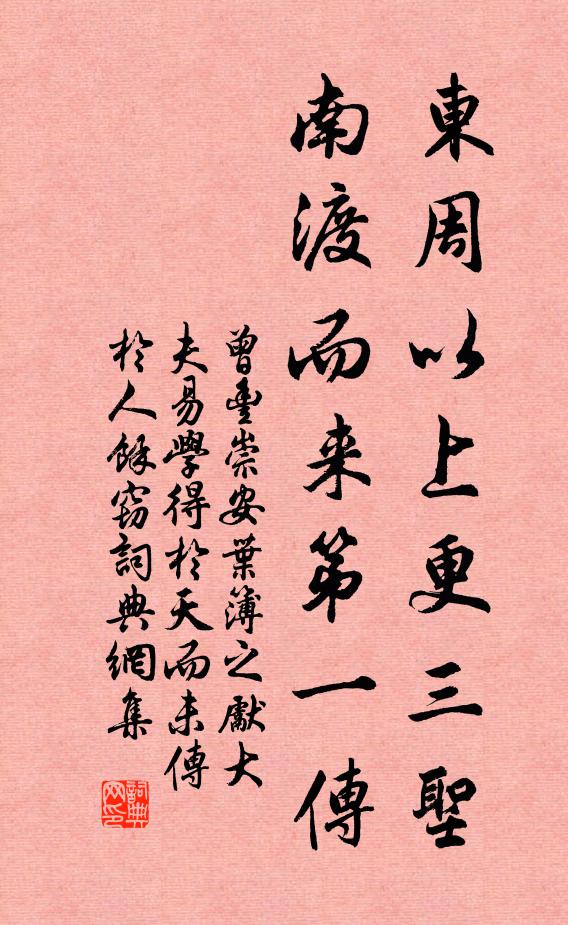 東周以上更三聖
南渡而来第一傳
曾豐崇安葉簿之獻大
夫易學得於天而未傳
於人餘竊詞典網集
詞典網印